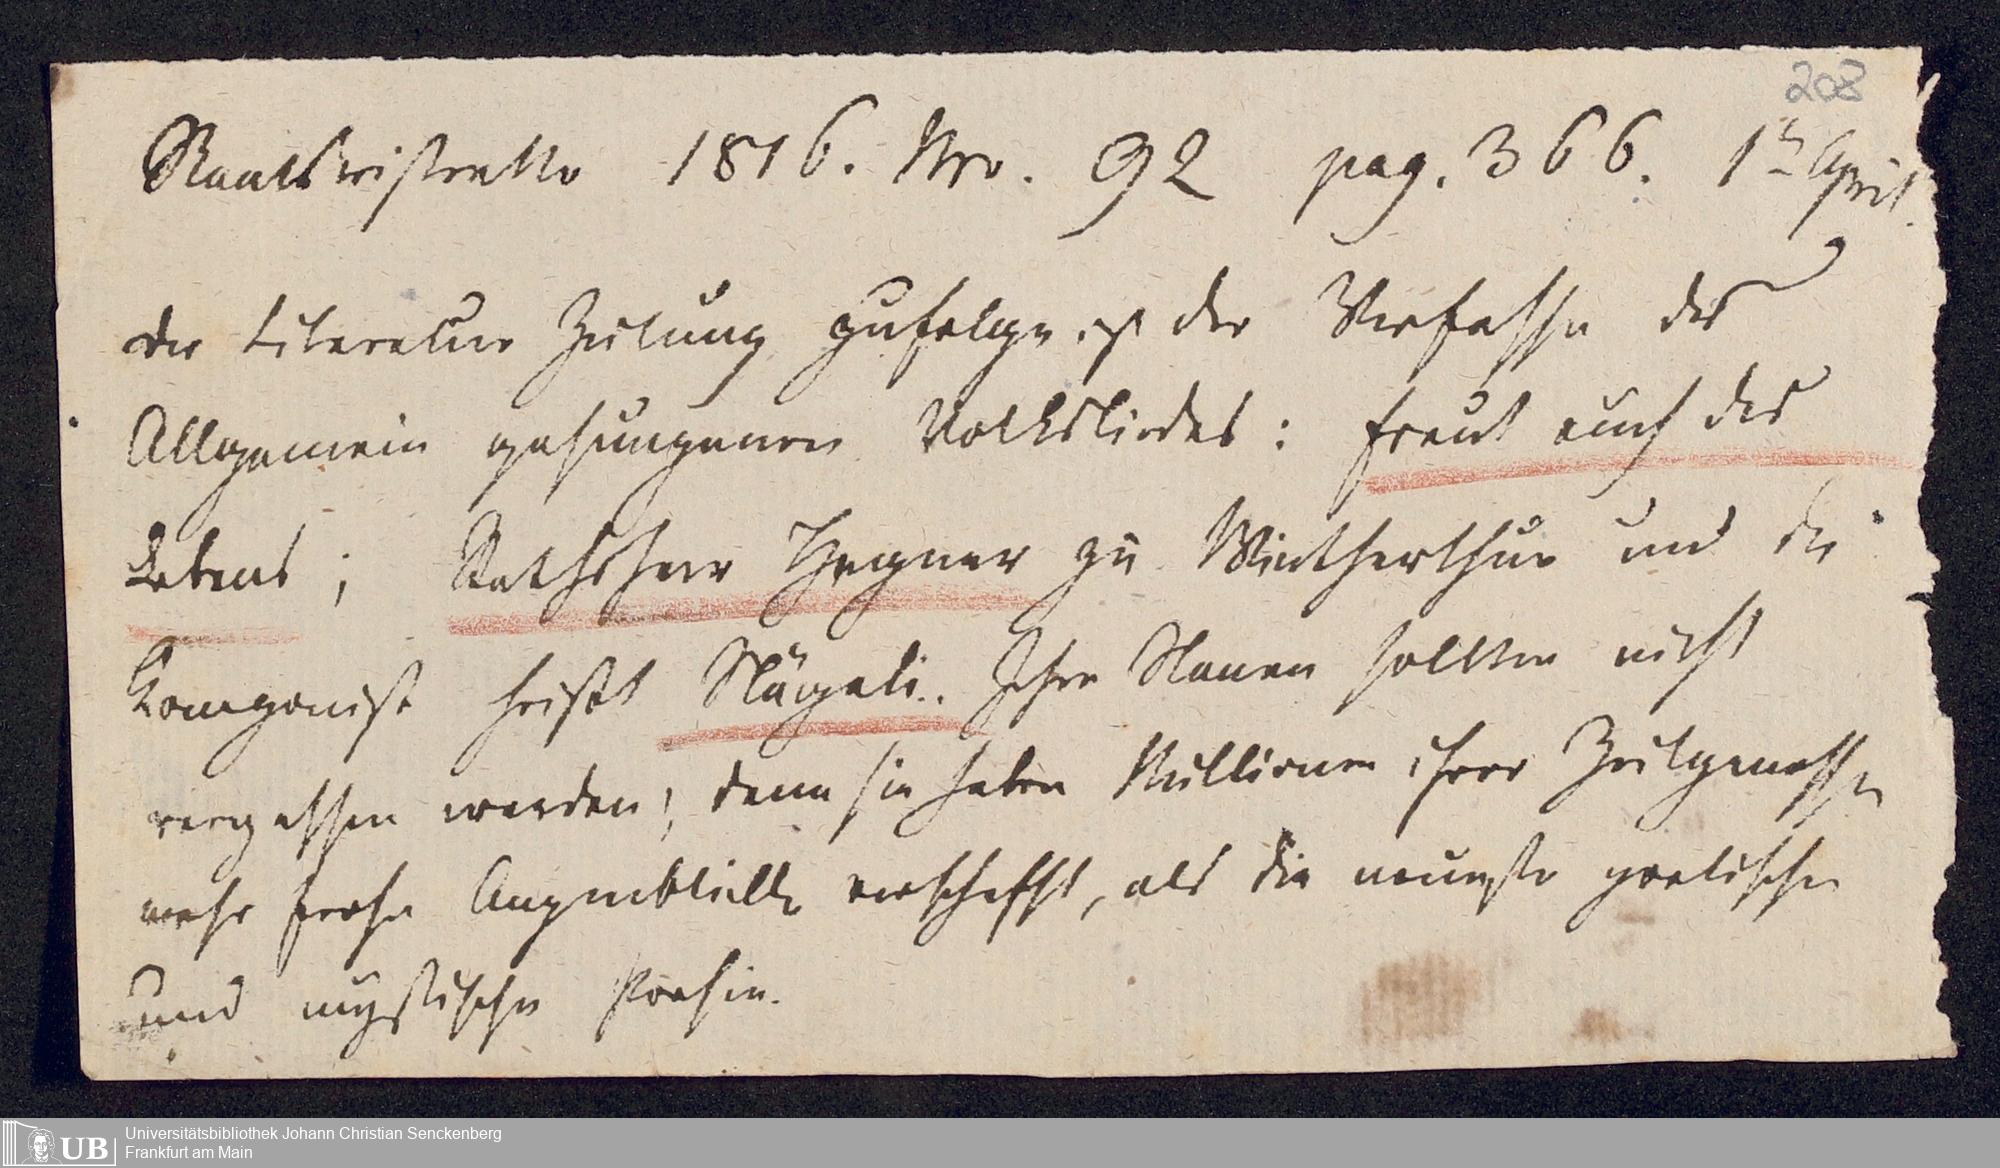 208
Staatsristretto 1816. Nro. 92 pag. 366. 1ten April.
der Literatur Zeitung zufolge ist der Verfasser des
Allgemein gesungenen Volksliedes: freut euch des
Lebens; Rathsherr Hegner zu Wintherthur und der
Komponist heißt Nägeli. Ihre Namen sollten nicht
vergessen werden; denn sie haben Millionen ihrer Zeitgenossen
mehr frohe Augenblicke verschafft, als die neueste poetische
und mystische Poesie.
UB
Universitätsbibliothek Johann Christian Senckenberg
Frankfurt am Main